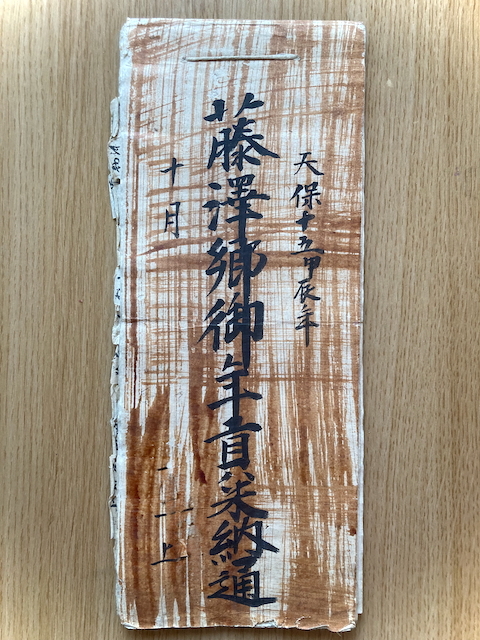 天保十五甲辰年
藤澤郷御年貢米納通
十月